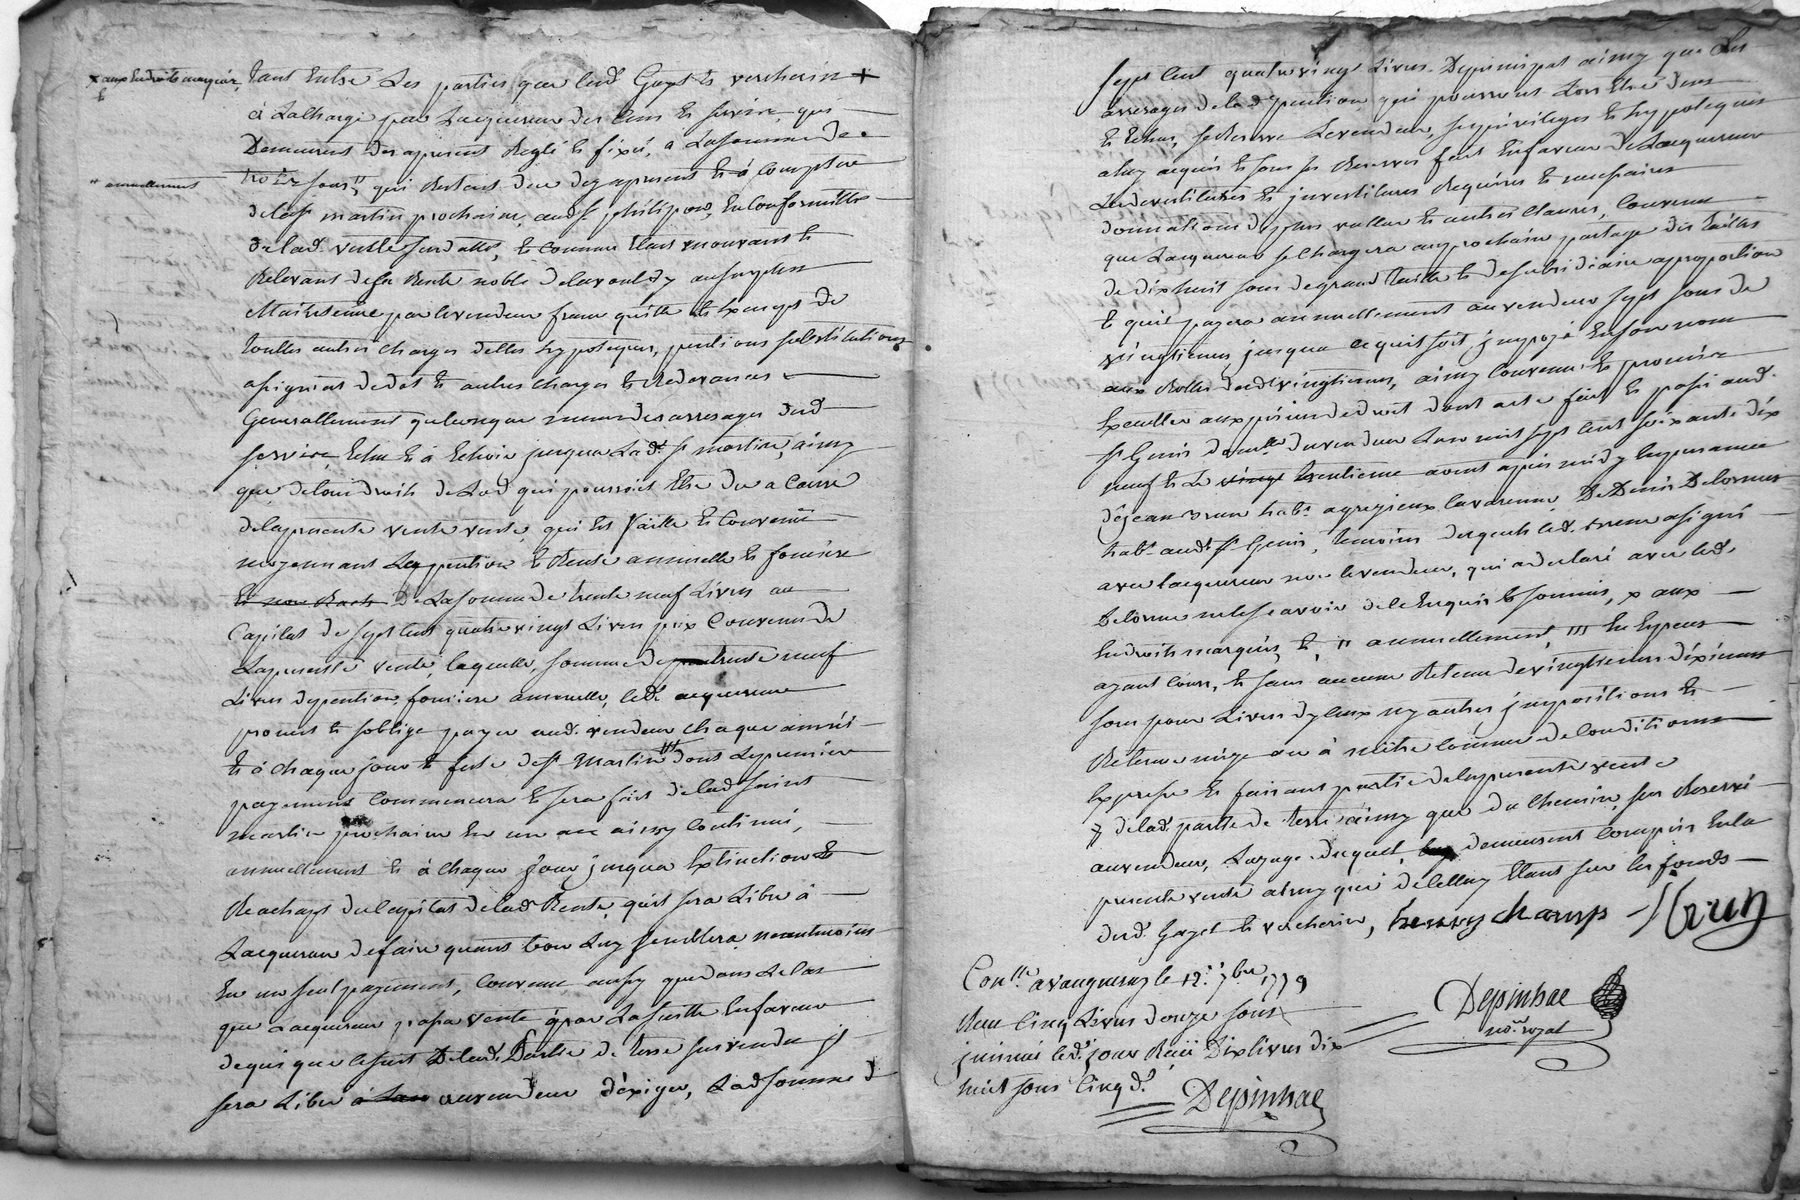 x aux Endroits marqués,
tant Entre Les parties que lesd. Gayet & vercherin x
à La Charge par Lacquereur des Cens & service que
Demeurent des apresent Reglé & fixé, a La Somme de
trois sous " qui Restent due dez apresent & à Compter
" annuellement
de la St martin prochaine, aud. St philipon, En Conformitté
de lad. vente susdatté, & comme Etant mouvant &
Relevant de sa Rente noble
Maintenüe par le vendeur franc quitte & Exempt de
touttes autres charges dettes hypoteques, pentions substitutions
asignint de dot & autres charges & Redevances
Generallement quelconque même des arrerages dud.
service Echu & à Echoir jusqua Lad. St martin, ainsy
que de louds droits de Lod qui pourroit Etre du a Cause
de la presente vente vente, qui Est faitte & Convenüe
moyennant La pention & Rente annuelle & fonciere
De La somme de trente neuf Livres au
Capital de sept cent quatre vingt Livres prix Convenu de
La presente vente, laquelle somme de trente neuf
Livres de pention fonciere annuelle, led. acquereur
promet & soblige payer aud. vendeur Chaque année
& à Chaque jour & feste de St Martin ''' dont Le premier
payement Commencera & sera fait de lad. saint
martin prochaine En un an ainsy Continué,
annuellement & à chaque jour jusqua Extinction &
Reachapt du Capital de lad. Rente, quil sera Libre à
Lacquereur de faire quant bon Luy semblera neantmoins
En un seul payement, Convenu aussy que dans Le Cas
que Lacquereur passa vente par La suitte En faveur
de qui que ce fut De lad. Partie de terre survendu jl
sera Libre au vendeur d'exiger, Lad. somme de
sept Cent quatre vingt Livres De principal ainsy que Les
arrerages de lad. pention qui pourront Lors Etre dues
& Echus, se Reserve Le vendeur, ses privileges & hypoteques
aluy acquis & sous ses Reserves fait En faveur de Lacquereur
Les devestitures & jnvestitures Requises & necessaires
donnation de plus vallue & autres Clauses, Convenu
que Lacquereur se Chargera au prochain partage des tailles
de dixhuit sous de grand taille & de subsidiaire a proportion
& quil payera annuellement au vendeur sept sous de
vingtiemes jusqua ce quil soit jmposé En son nom
aux Rolles desd. vingtiemes, ainsy Convenu & promis
Executter aux peines de droit dont acte fait & passé aud.
St Genis demlle du vendeur Lan mil sept cent soixante dix
neuf & Le trentieme aoust apres midy En presence
de jean Brun habt. a grezieux la varenne, De Denis Delorme
habt. aud. St Genis, temoins desquels led. Brun a signé
avec lacquereur non le vendeur, qui a declaré avec led.
Delorme ne le savoir de ce Enquis & sommés, x aux
Endroits marqués, &, " annuellement, ''' En Especes
ayant Cours, & sans aucune Retenue de vingtiemes dixiemes
sous pour Livres dy ceux ny autres jmpositions &
Retenue mize ou à mettre Comme de Conditions
Expresse & faisant partie de la presente vente
de lad. partie de terre ainsy que du chemin, sus Reservé
au vendeur, La page duquel, demeurent Compris En la
presente vente ainsy que de Celluy Etant sur les fonds
dud. Gayet & vercherin, henrychamp Brun
Conllé a vaugneray le 12. 7bre 1779
Reçu Cinq Livres douze sous
jnsinué led. jour Reçû Dix livres dix
huit sous Cinq d.
Depinhac
Depinhac
nore. royal